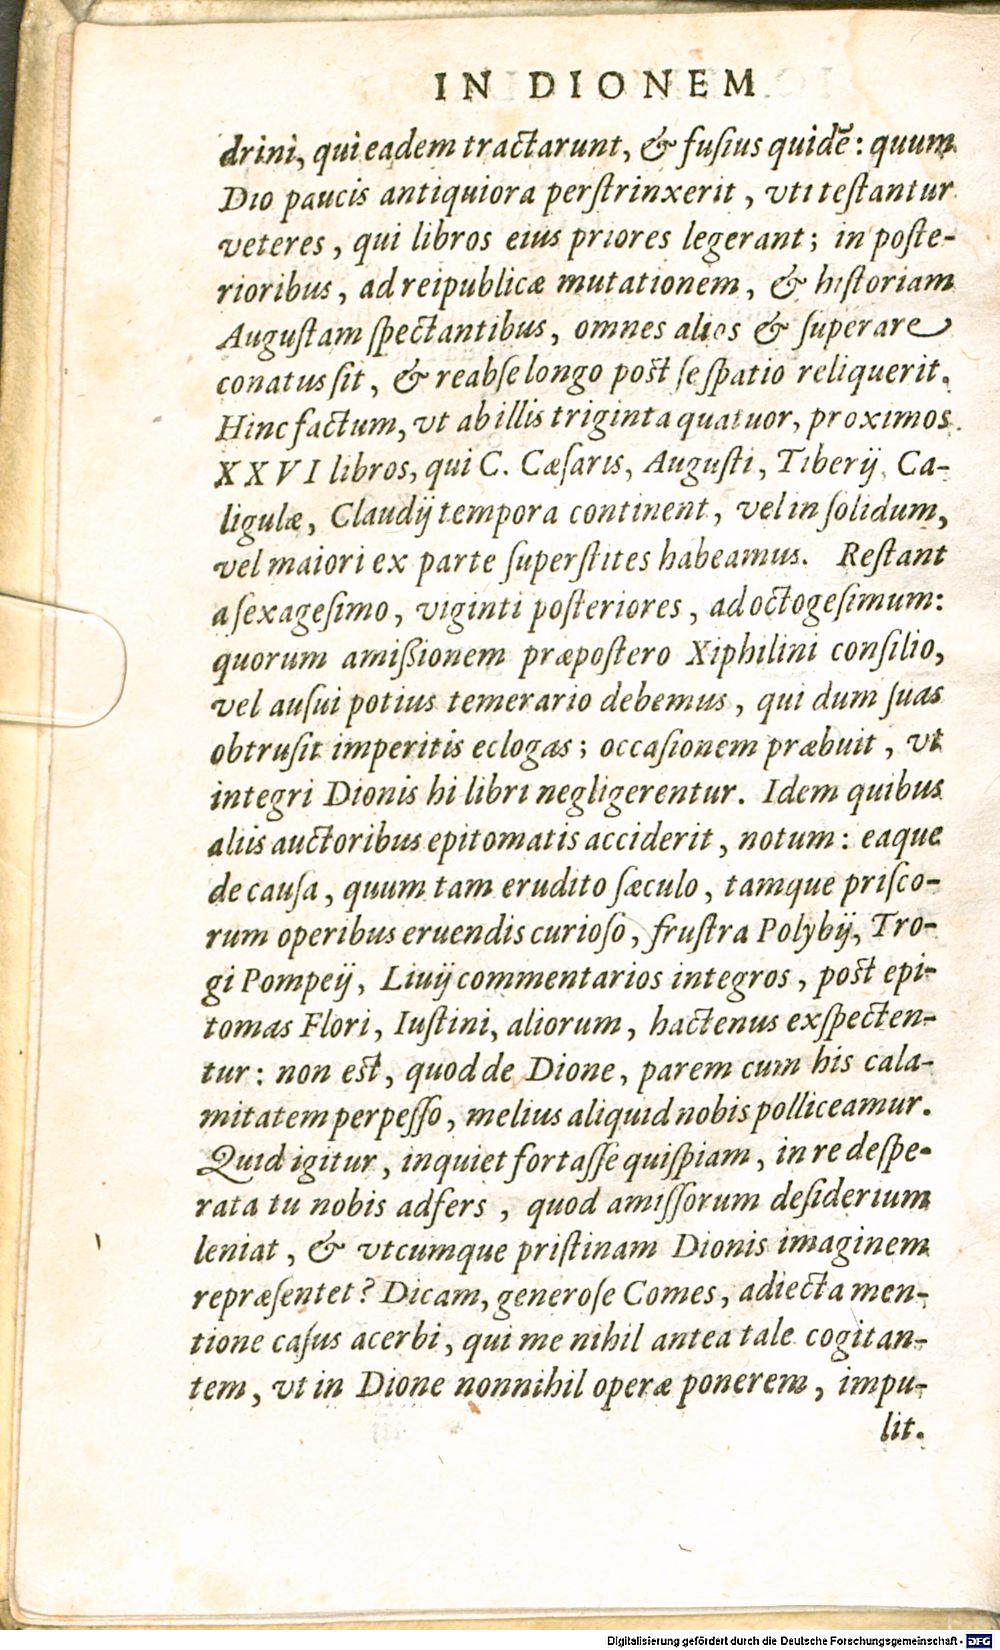 IN DIONEM
drini, qui eadem tractarunt, & fuſius quidẽ: quum
Dio paucis antiquiora perſtrinxerit, vti teſtantur
veteres, qui libros eius priores legerant; in poſte-
rioribus, ad reipublicæ mutationem, & hiſtoriam
Auguſtam ſpectantibus, omnes alios & ſuperare
conatus ſit, & reabſe longo poſt ſe ſpatio reliquerit.
Hinc factum, vt ab illis triginta quatuor, proximos
XXVI libros, qui C. Cæſaris, Auguſti, Tiberij, Ca-
ligulæ, Claudij tempora continent, vel in ſolidum,
vel maiori ex parte ſuperſtites habeamus. Reſtant
a ſexageſimo, viginti poſteriores, ad octogeſimum:
quorum amiſsionem præpoſtero Xiphilini conſilio,
vel auſui potius temerario debemus, qui dum ſuas
obtruſit imperitis eclogas; occaſionem præbuit, vt
integri Dionis hi libri negligerentur. Idem quibus
aliis auctoribus epitomatis acciderit, notum: eaque
de cauſa, quum tam erudito ſæculo, tamque priſco-
rum operibus eruendis curioſo, fruſtra Polybij, Tro-
gi Pompeij, Liuij commentarios integros, poſt epi-
tomas Flori, Iuſtini, aliorum, hactenus exſpecten-
tur: non eſt, quod de Dione, parem cum his cala-
mitatem perpeſſo, melius aliquid nobis polliceamur.
Quid igitur, inquiet fortaſſe quiſpiam, in re deſpe-
rata tu nobis adfers, quod amiſſorum deſiderium
leniat, & vtcumque priſtinam Dionis imaginem
repræſentet? Dicam, generoſe Comes, adiecta men-
tione caſus acerbi, qui me nihil antea tale cogitan-
tem, vt in Dione nonnihil operæ ponerem, impu-
lit.
Digitalisierung gefördert durch die Deutsche Forschungsgemeinschaft - DFG